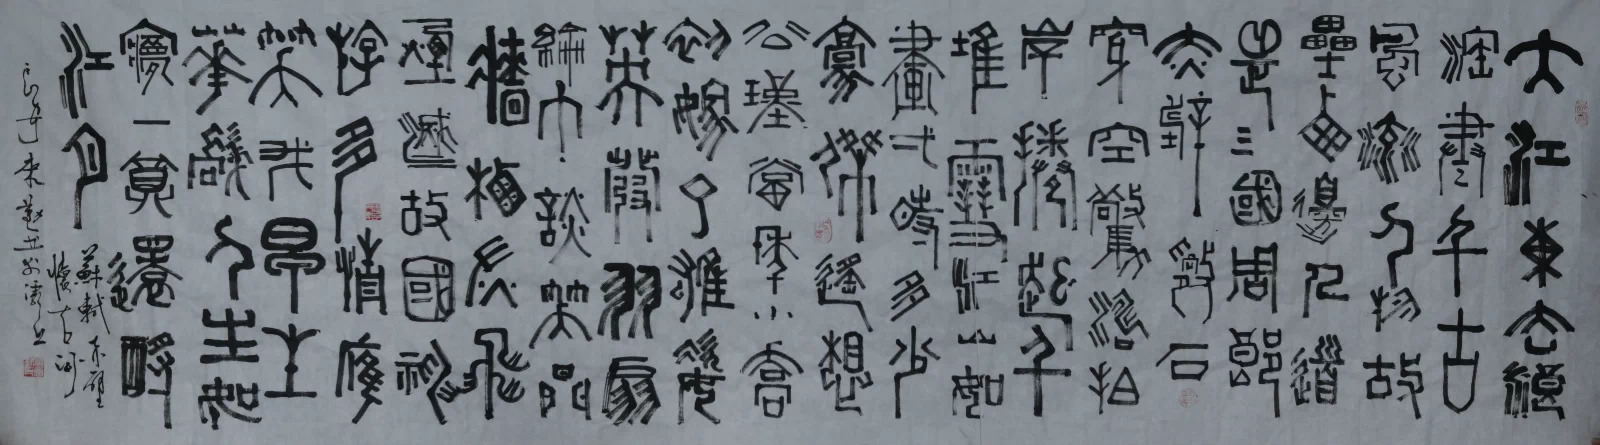 大江東去浪
淘盡千古
風流人物故
壘西邊人道
是三國周郎
赤壁亂石
穿空驚濤拍
岸捲起千
堆雪江山如
畫弌時多少
豪傑遙想
公瑾當年小喬
初嫁了雄姿
英發羽扇
綸巾談笑間
檣櫓灰飛
煙滅故國神
遊多情應
笑我早生
華髮人生如
夢一尊還酹
江月
蘇軾赤壁
懷古詞